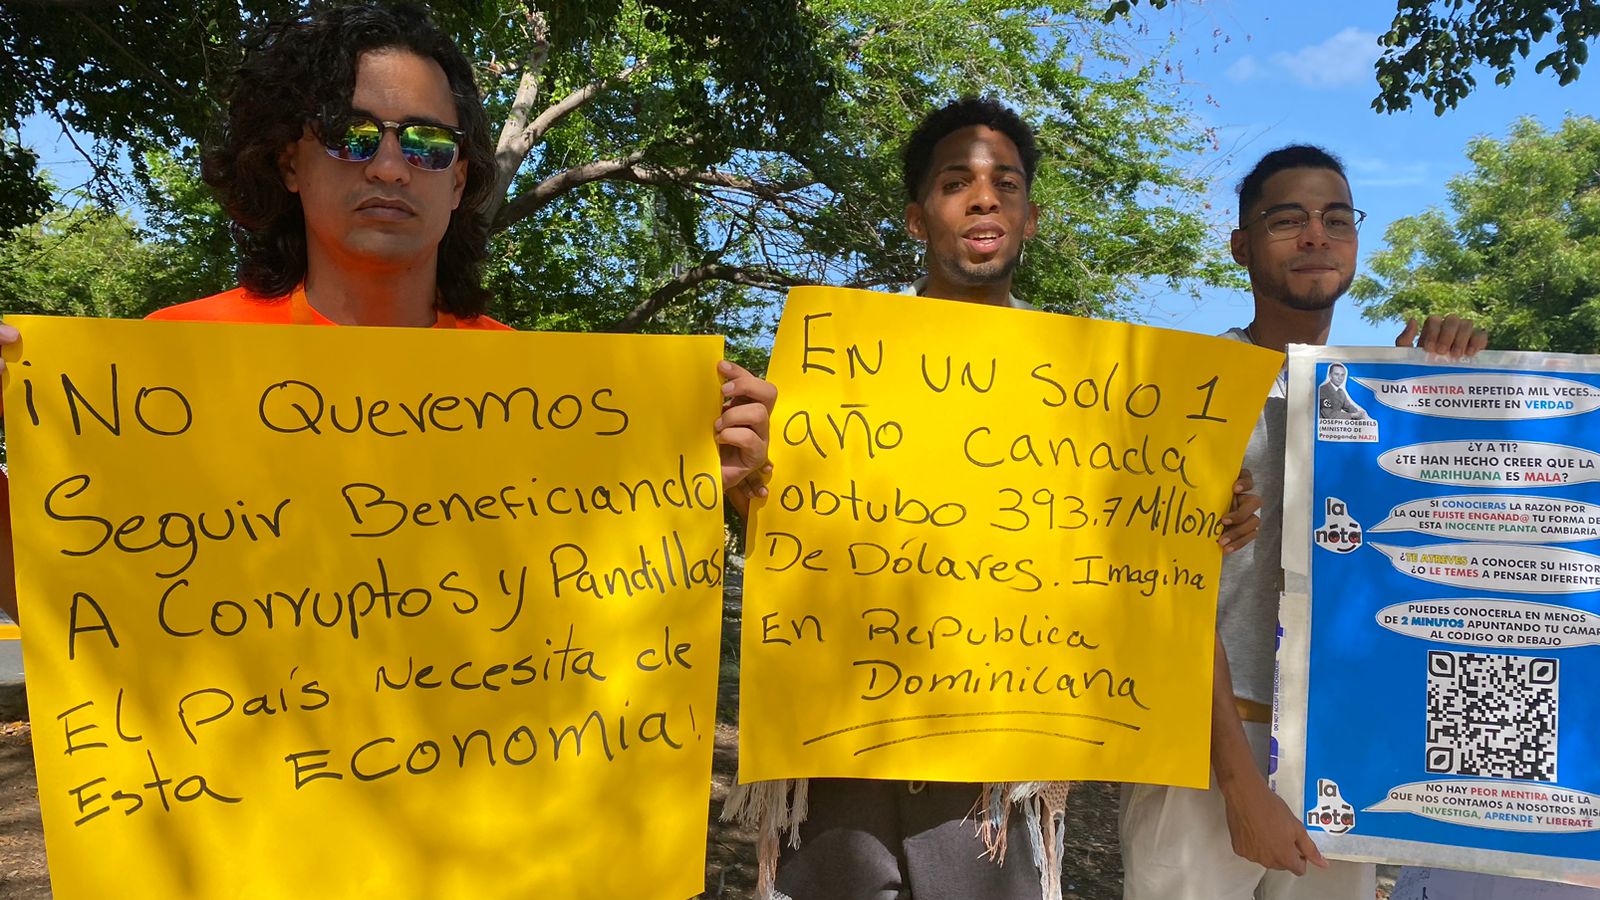 ¡No Queremos
Seguir Beneficiando
A Corruptos y Pandillas.
El país Necesita de
Esta Economía!
EN UN Solo 1
año Canadá
obtubo 393.7 Millon
De Dólares. Imagina
En Republica
Dominicana
UNA MENTIRA REPETIDA MIL VECES...
...SE CONVIERTE EN VERDAD
JOSEPH GOEBBELS
(MINISTRO DE
Propaganda NAZI)
¿Y A TI?
¿TE HAN HECHO CREER QUE LA
MARIHUANA ES MALA?
SI CONOCIERAS LA RAZÓN POR
LA QUE FUISTE ENGAÑAD@ TU FORMA DE
ESTA INOCENTE PLANTA CAMBIARIA
la
nota
¿TE ATREVES A CONOCER SU HISTOR
¿O LE TEMES A PENSAR DIFERENTE
PUEDES CONOCERLA EN MENOS
DE 2 MINUTOS APUNTANDO TU CAMAR
AL CÓDIGO QR DEBAJO
NO HAY PEOR MENTIRA QUE LA
QUE NOS CONTAMOS A NOSOTROS MIS
INVESTIGA, APRENDE Y LIBERATE
la
nota